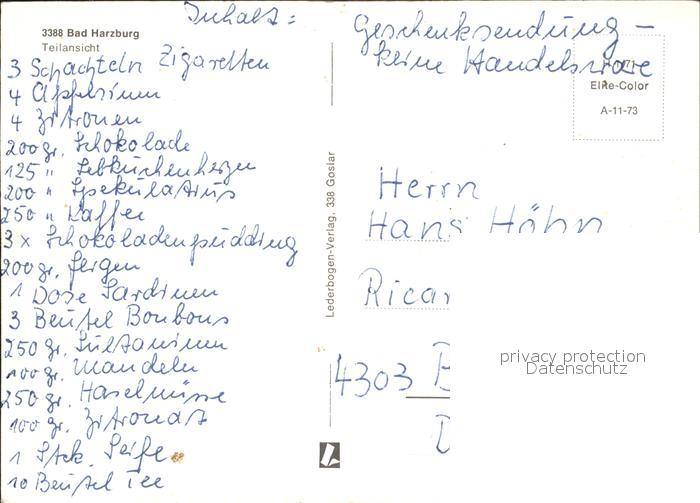 Inhalt:
3388 Bad Harzburg
Teilansicht
3 Schachteln Zigaretten
4 Apfelsinen
4 Zitronen
200 gr. Schokolade
125 " Lebkuchenherzen
200 " Spekulatius
250 " Kaffee
3 x Schokoladenpudding
200 gr. Feigen
1 Dose Sardinen
3 Beutel Bonbons
250 gr. Sultaninen
100 gr. Mandeln
250 gr. Haselnüsse
100 gr. Zitronat
1 Stck. Seife
10 Beutel Tee
Lederbogen-Verlag, 338 Goslar
Geschenksendung -
keine Handelsware
Elke-Color
A-11-73
Herrn
Hans Höhn
Ricar
4303 B
D
privacy protection
Datenschutz